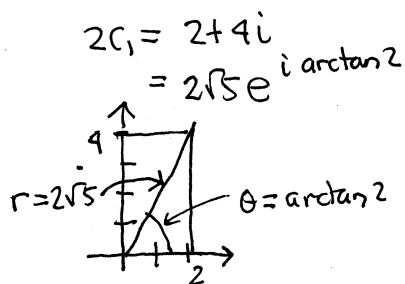 2C₁ = 2+4i
= 2√5 e^{i arctan 2}
4
r=2√5
θ=arctan2
2